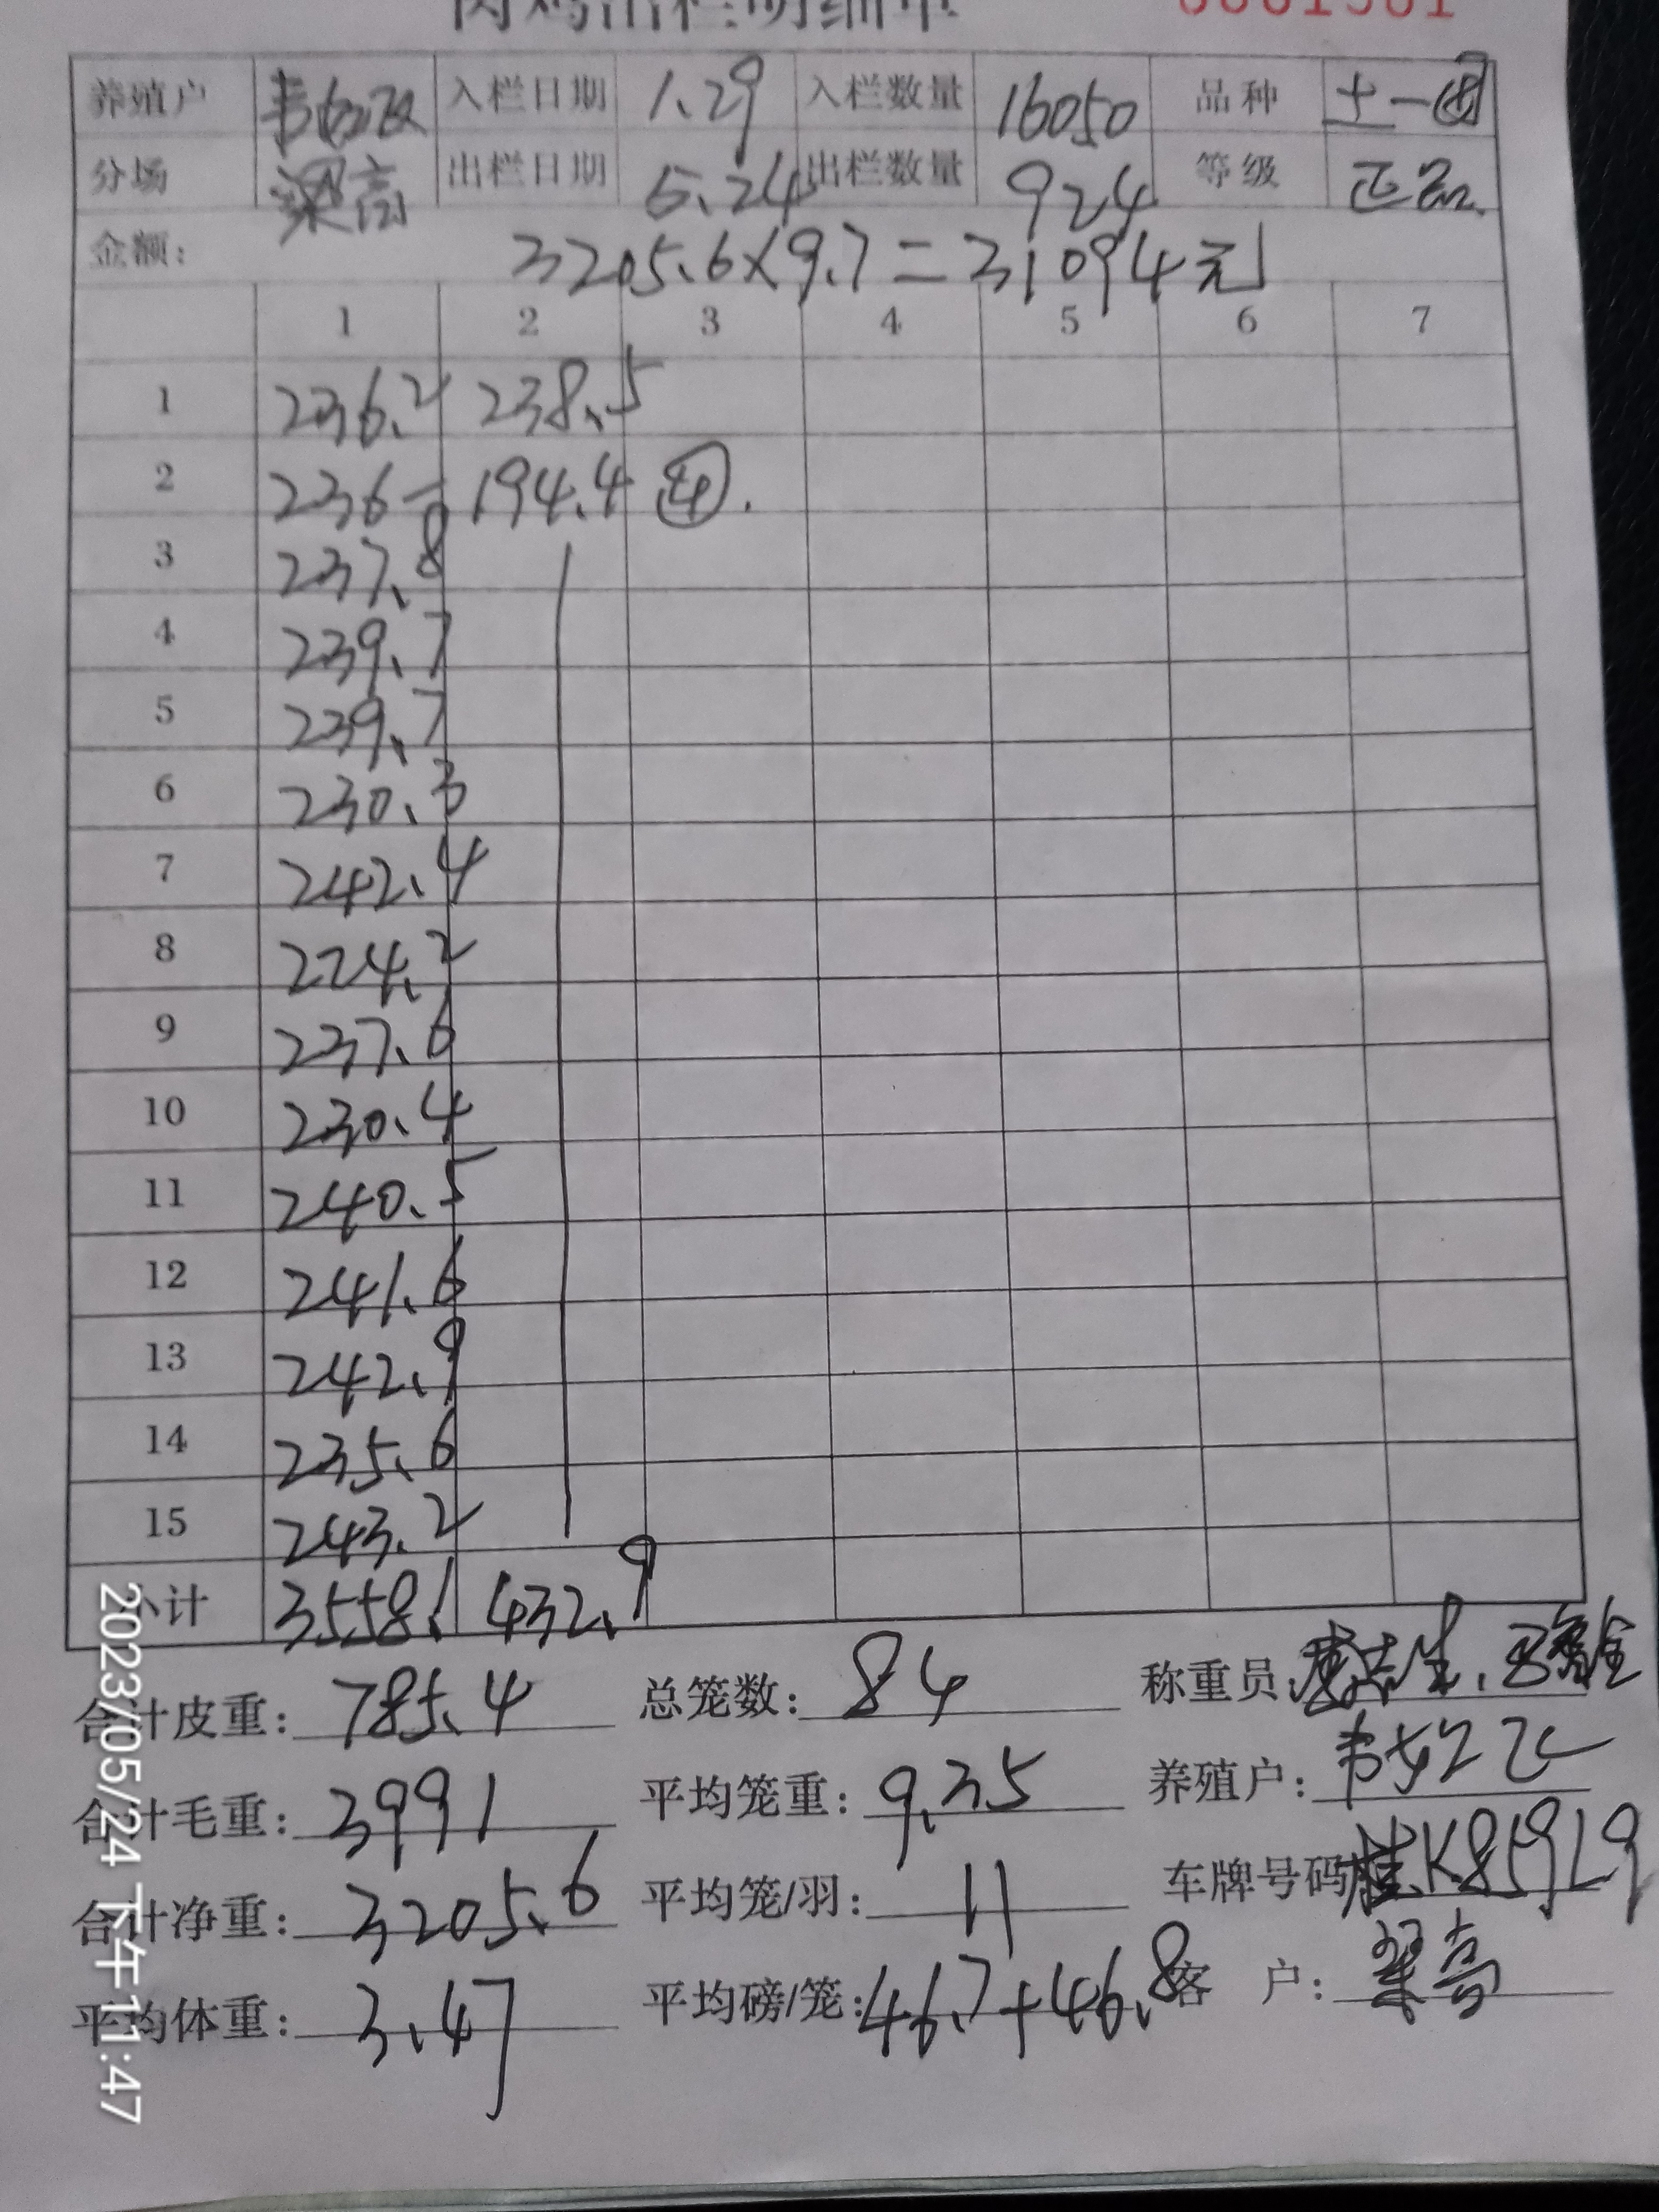 肉鸡出栏明细单 0001501
养殖户 韦 入栏日期 1.29 入栏数量 16050 品种 土一
分场 梁高 出栏日期 5.24 出栏数量 924 等级 正品
金额: 3205.6×9.7=31094元
1 2 3 4 5 6 7
1 236.2 238.5
2 236- 194.4 ④.
3 237.8
4 239.7
5 239.7
6 230.3
7 242.4
8 224.2
9 237.6
10 230.4
11 240.5
12 241.6
13 242.9
14 235.6
15 243.2
小计 3558.1 432.9
合计皮重: 785.4 总笼数: 84 称重员:
合计毛重: 3991 平均笼重: 9.35 养殖户: 韦
合计净重: 3205.6 平均笼/羽: 11 车牌号码: 桂K859L9
平均体重: 3.47 平均磅/笼: 46.7+46.8 客 户: 梁高
2023/05/24 下午11:47